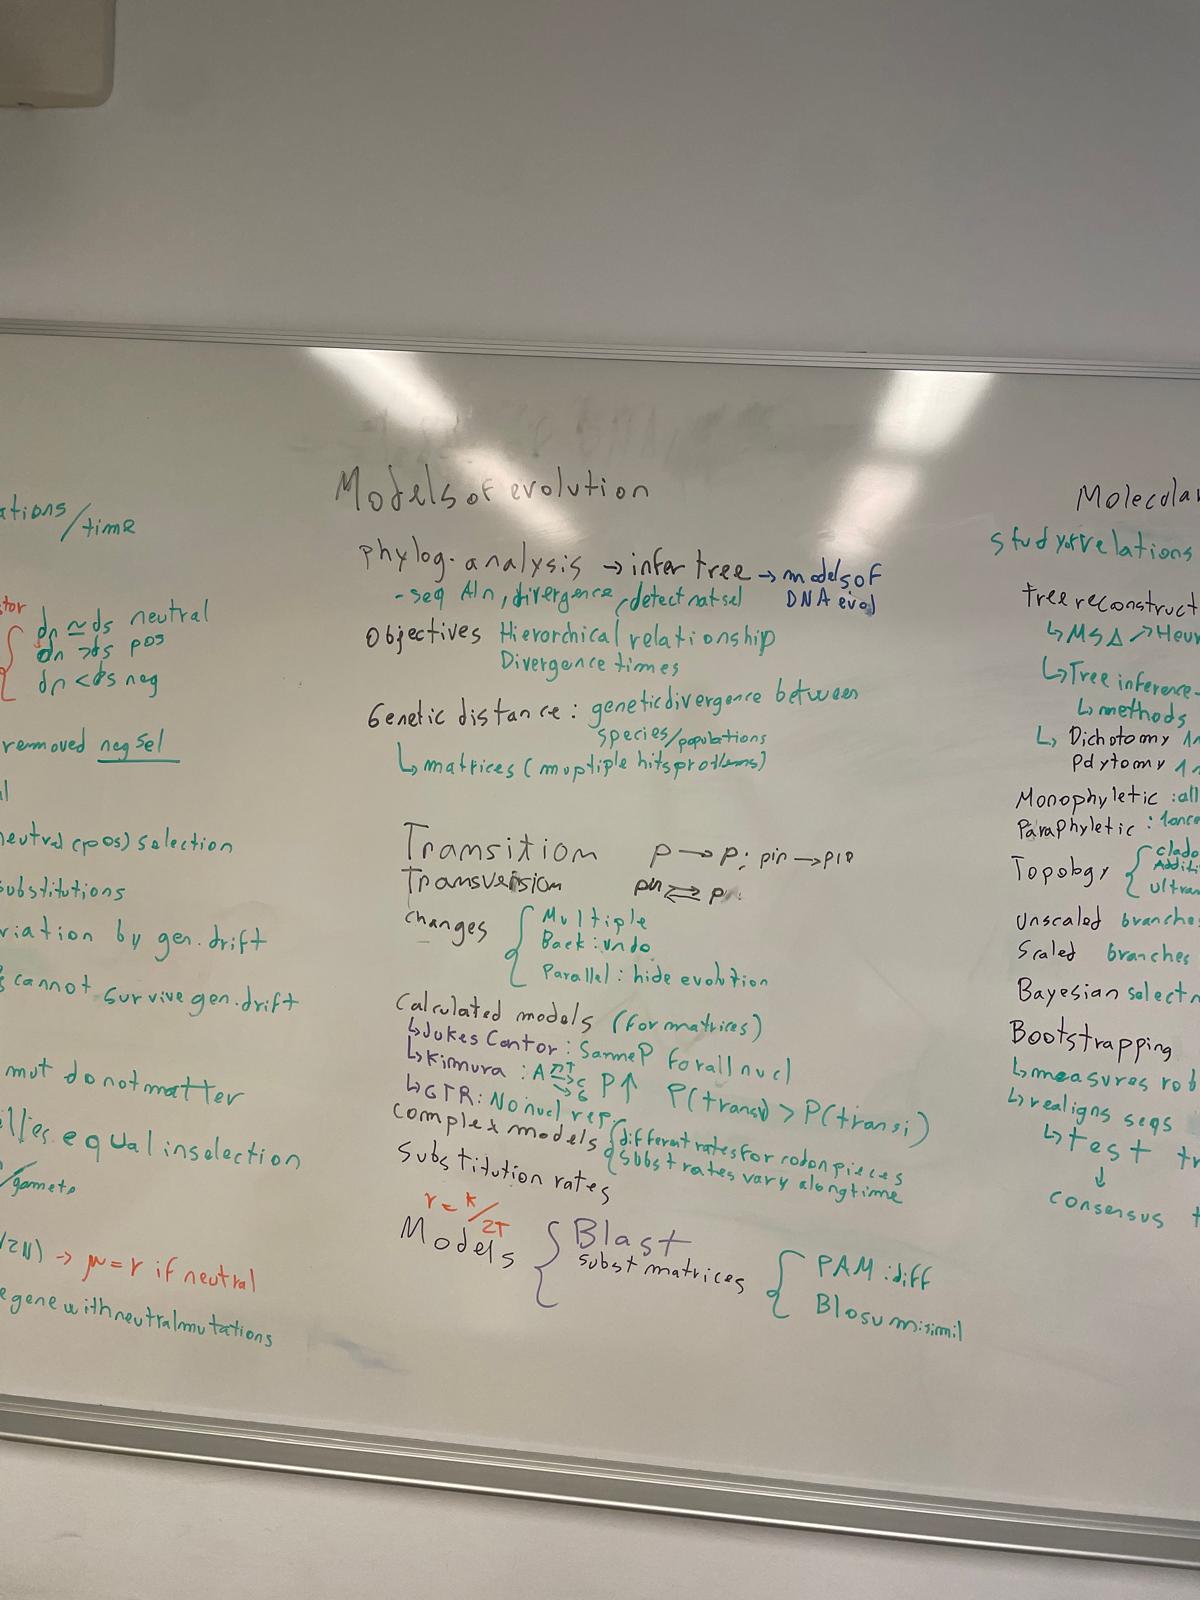 ations/time
dn ≃ ds neutral
dn > ds pos
dn < ds neg
removed neg sel
neutral (pos) selection
substitutions
riation by gen. drift
cannot survive gen. drift
mut do not matter
equal in selection
/gamete
/2N) → μ = r if neutral
e gene with neutral mutations
Models of evolution
phylog. analysis → infer tree → models of DNA evol
- seq Aln, divergence, detect nat sel
Objectives Hierorchical relationship
Divergence times
Genetic distance : genetic divergence between
species/populations
↳ matrices (muptiple hits problems)
Transition p → p; pir → pir
Transversion
changes { Multiple
Back : undo
Parallel : hide evolution
Calculated models (for matrices)
↳ Jukes Cantor : Samme P for all nucl
↳ Kimura : A P↑ P(transv) > P(transi)
↳ GTR : No nucl rep.
complex models { different rates for codon pieces
subst rates vary along time
Substitution rates
r = K/2T
Models { Blast
subst matrices { PAM : diff
Blosum : simil
Molecolar
study of relations
Tree reconstruct
↳ MSA ↗ Heur
↳ Tree inference
↳ methods
↳ Dichotomy
Polytomy
Monophyletic : all
Paraphyletic : 1 ance
Topology { clado
Additi
ultra
Unscaled branches
Scaled branches
Bayesian select
Bootstrapping
↳ measures rob
↳ realigns seqs
↳ test tr
↓
consensus t